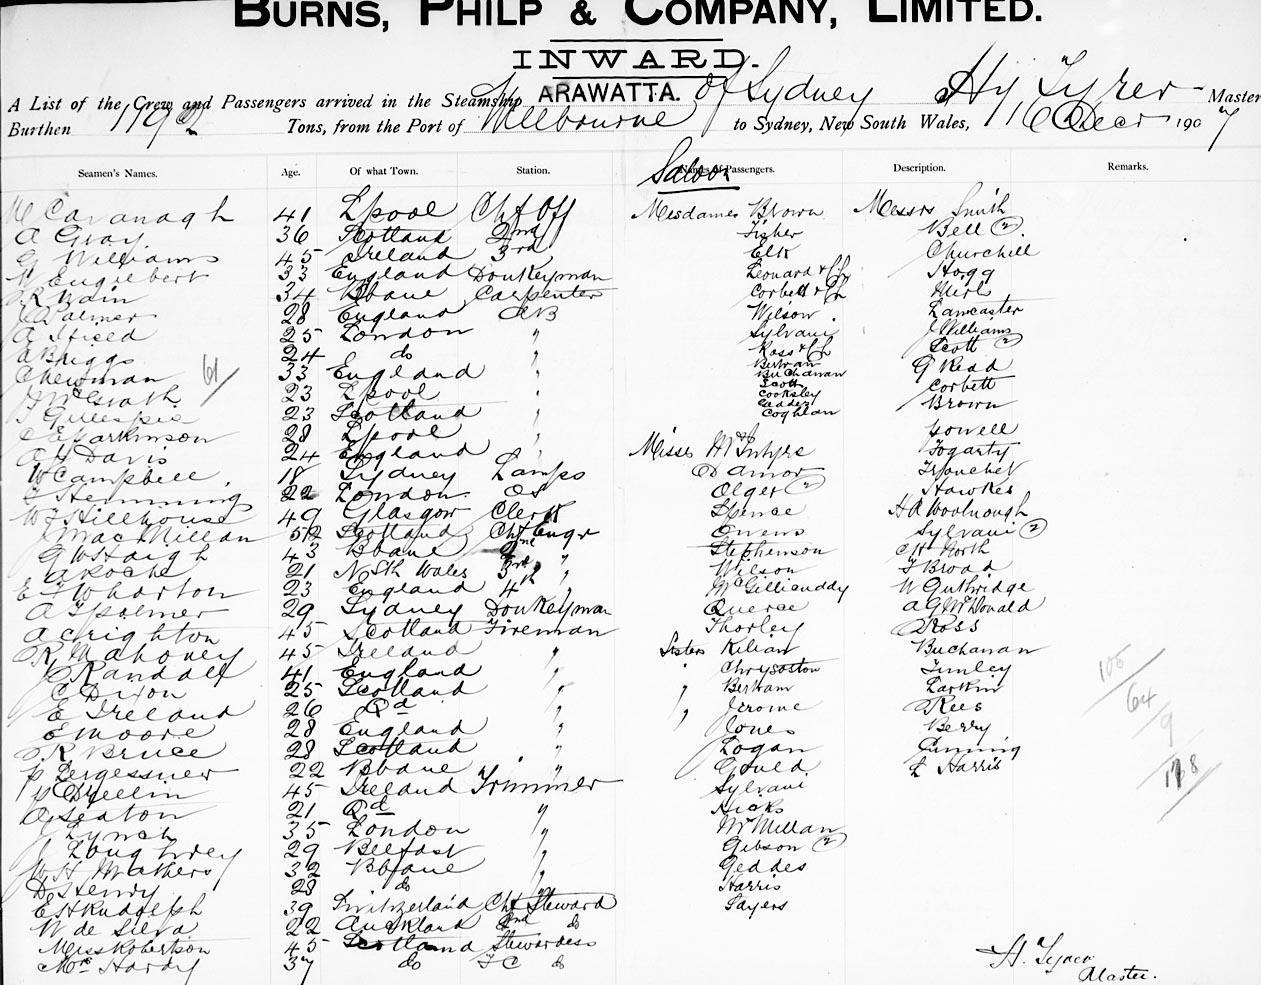 BURNS, PHILP & COMPANY, LIMITED.
INWARD.
A List of the Crew and Passengers arrived in the Steamship ARAWATTA. of Sydney Hy Tyrer Master
Burthen Tons, from the Port of Melbourne to Sydney, New South Wales, 16 Decr 1907
Saloon
Seamen's Names. Age. Of what Town. Station. Names of Passengers. Description. Remarks.
M Cavanagh 41 Lpool Chf Off Mesdames Brown Messrs Smith
A Gray 36 Scotland 2nd Fisher Bell (2)
G Williams 45 Ireland 3rd Elk Churchill
Englebert 33 England Donkeyman Leonard & Ch Hogg
R Wain 34 Bbane Carpenter Corbett & Ch
Palmer 28 England AB Wilson Lancaster
A Ificed 25 London " Sylvani J Williams
A Briggs 24 do " Ross & Ch Scott (2)
C Newman 61 33 England " Bertram G Read
Buchanan
J McGrath 23 Lpool " Scott Corbett
Cooksley
T Gillespie 23 Scotland " Brown
Coghlan
C E Parkinson 28 Lpool " Howell
A H Davis 24 England " Misses McIntyre Fogarty
W Campbell 18 Sydney Lamps Damor Trouchet
F Hemming 22 London OS Olger (2) Hawkes
W J Hillhouse 49 Glasgow Clerk Spence H A Woolnough
J MacMillan 52 Scotland Chf Engr Owens Sylvani (2)
G W Haigh 43 Bbane 2nd " Stephenson North
A Roche 21 N Sth Wales 3rd " Wilson T Broad
E J Wharton 23 England 4th " McGillicuddy W Guthridge
A J Palmer 29 Sydney Donkeyman Queree A G McDonald
A Crighton 45 Scotland Fireman Thorley Ross
R Mahoney 45 Ireland " Sisters Kilian Buchanan
Randall 41 England " Chrysostom Tunley
C Dixon 25 Scotland " " Bertram Larkin
E Ireland 26 Qd " " Jerome Rees
E Moore 28 England " Jones Berry
R Bruce 28 Scotland " Logan Cuming
P Zergessner 22 Bbane " Gould L Harris
P Cryellin 45 Ireland Trimmer Sylvani
A Seaton 21 Qd " Hicks
J Lynch 35 London " McMillan
J Loughrey 29 Belfast " Gibson (2)
W H Mathers 32 Bbane " Geddes
D Henry 28 do " Harris
E H Rudolph 39 Switzerland Chf Steward Sayers
W de Silva 22 Auckland 2nd do
Miss Robertson 45 Scotland Stewardess
Mrs Hardy 37 do F C do
105
64
9
178
H. Tyrer
Master.